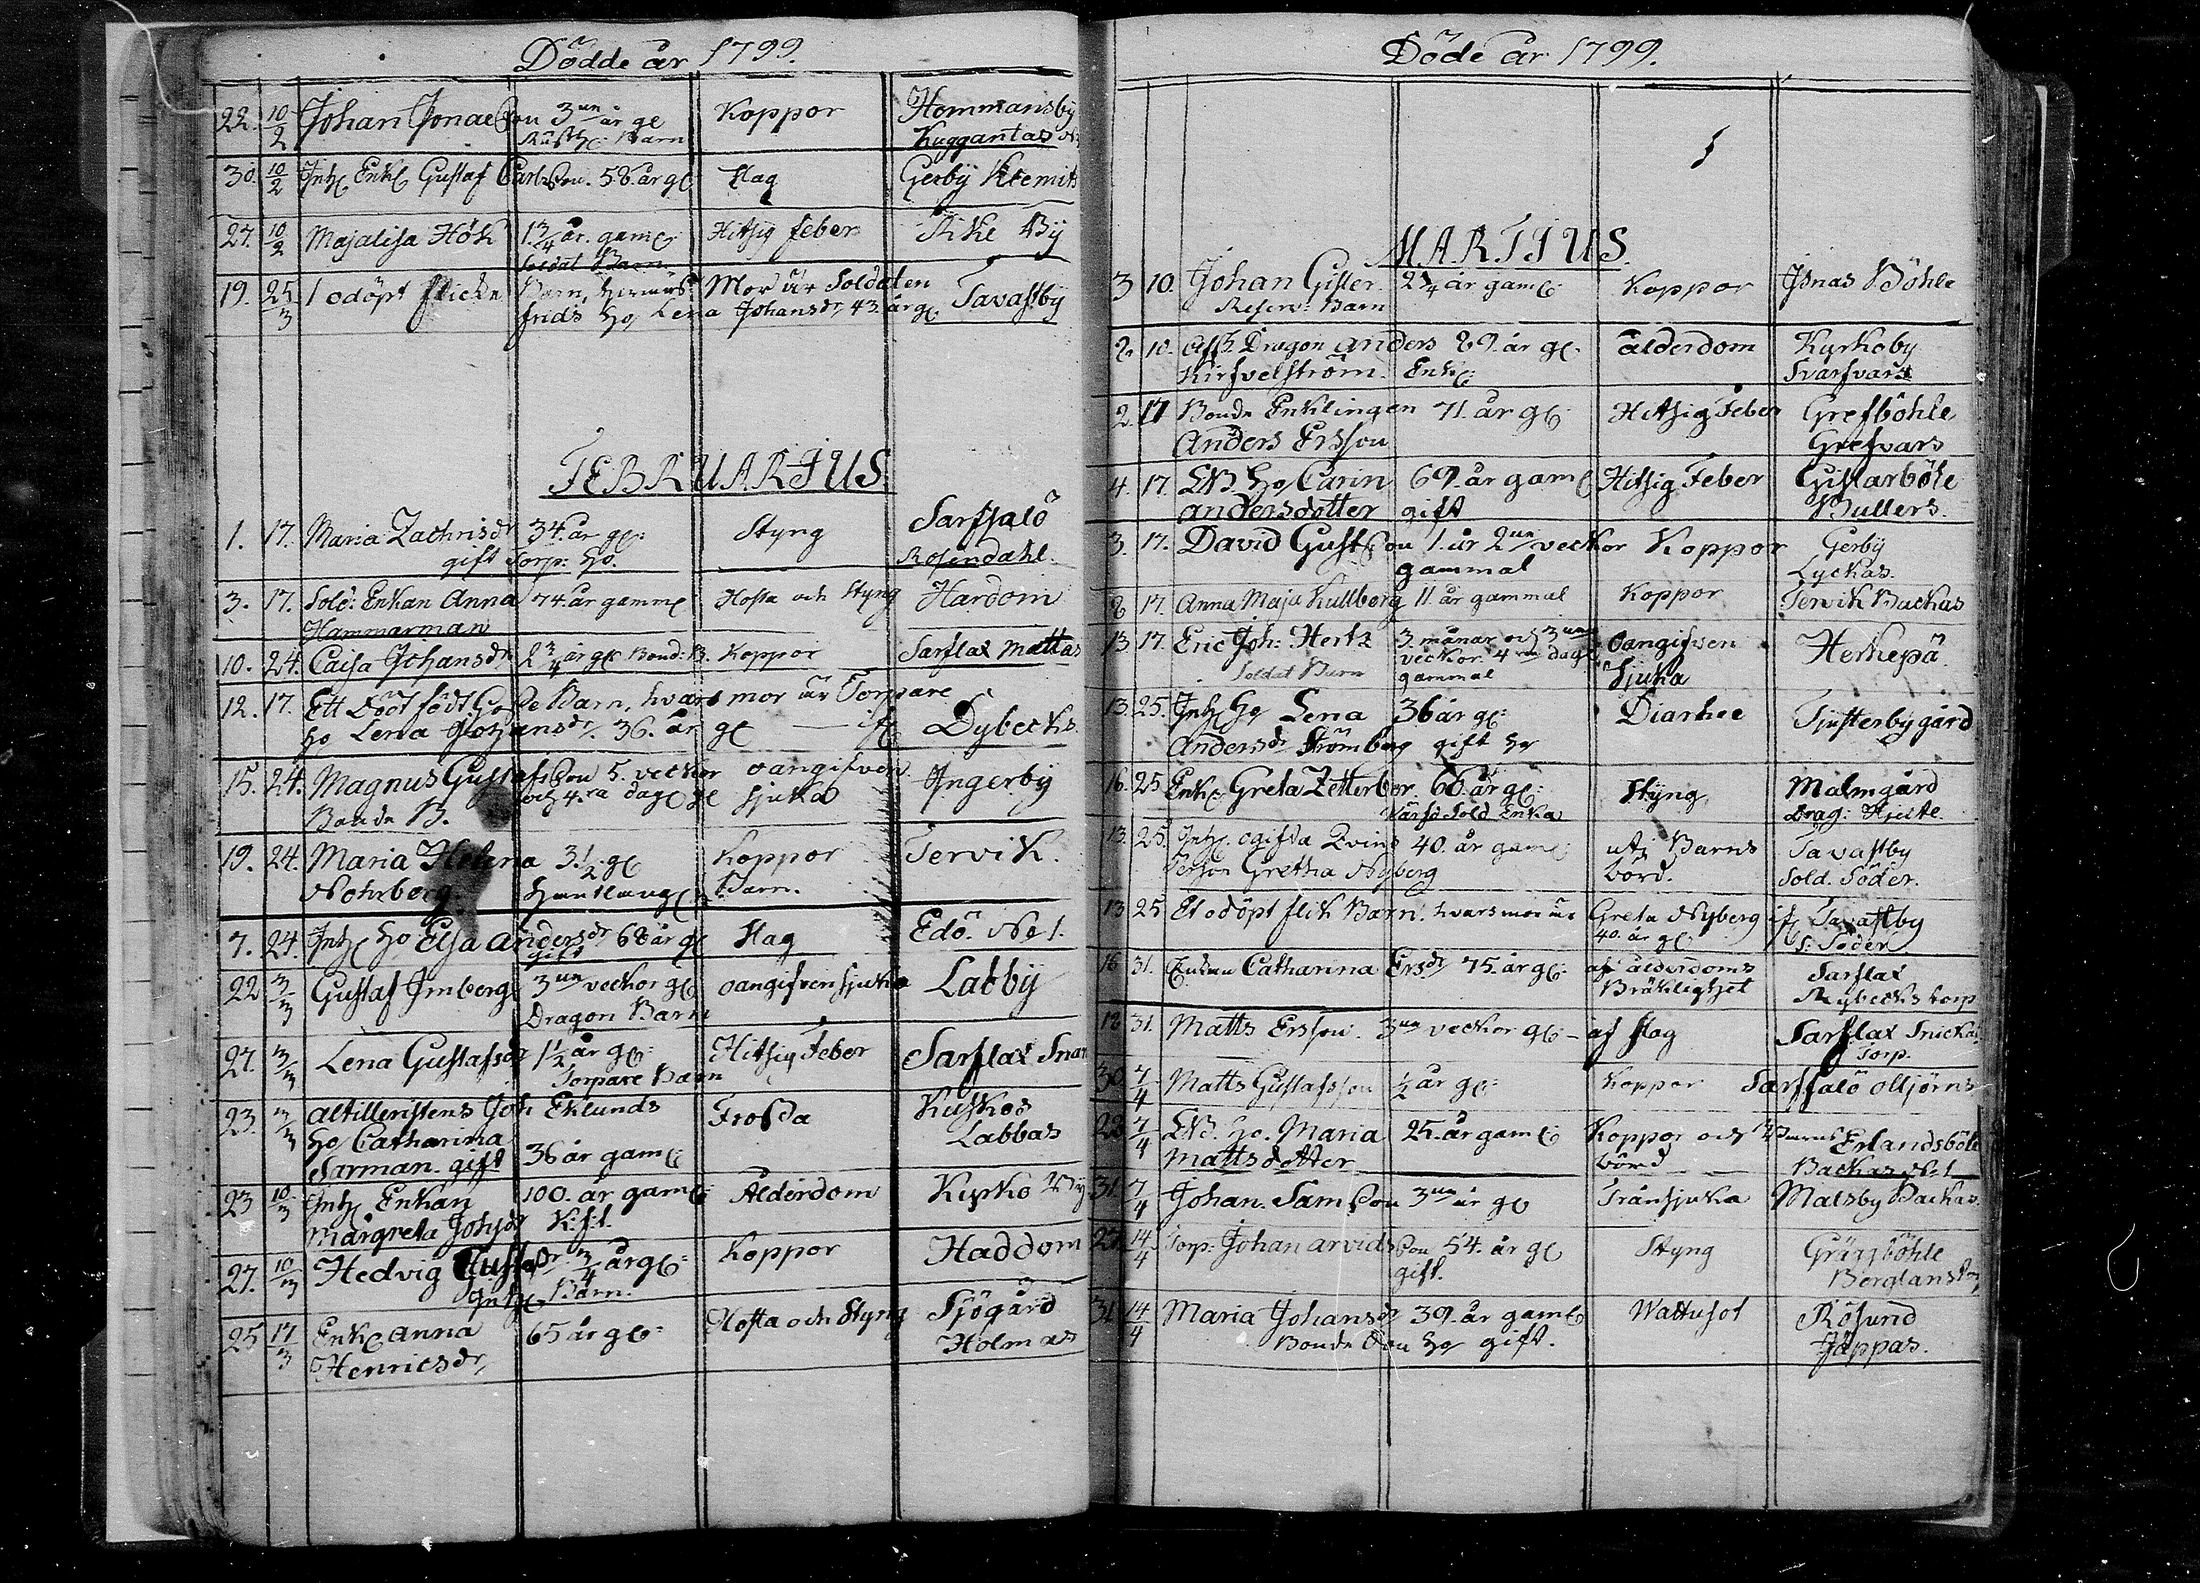 Dödde år 1799.
22. 10/2 Johan Jonaeson 3un år gl Koppor Hommansby
Barn Kuggantas
30. 10/2 Inh: Enkl Gustaf Carlson. 58. år gl Slag Gerby Klemits
27. 10/2 Majalisa Hök 1 3/4 år. gaml: Hitsig feber Rike By
Soldat Barn
19. 25/3 1 odöpt flicke Barn, hvars Mor är Soldaten Tavastby
frids ho, Lena Johansdr 43 år gl
FEBRUARIUS.
1. 17. Maria Zachrisdr 34. år gl: Styng Sarfsalö
gift Torp: ho. Rosendahl.
3. 17. Sold: Enkan Anna 74. år gamml Hosta och Styng Hardom
Hammarman
10. 24. Caisa Johansdr 2 3/4 år gl Bond: B. Koppor Sarflax Mattas
12. 17. Ett Död född Gosse Barn, hvars mor är Torpare
ho Lena Johansdr. 36. år gl Dybecks.
15. 24. Magnus Gustafson 5. veckor oangifven Ingerby
Bonde B. och 4.ra dag gl sjuka
19. 24. Maria Helena 3 1/2 gl Koppor Tervik.
Nohrberg. Barn.
7. 24. Inh: ho Elsa Andersdr 68 år gl Slag Edö. No 1.
gift
22 3/3 Gustaf Imberg 3un veckor gl oangifven sjuka Labby
Dragon Barn
27. 3/3 Lena Gustafsdr 1 1/2 år gl: Hitsig Feber Sarflax
Torpare Barn
23. 3/3 Altilleristens Joh Eklunds Frossa Kuskos
ho Catharina Labbas
Sarman. gift 36 år gaml
23 10/3 Inh: Enkan 100. år gaml: Ålderdom Kyrko By
Margreta Johsdr
27. 10/3 Hedvig Gustafsdr 3/4 år gl: Koppor Haddom
Inh: Barn.
25 17/3 Enk: Anna 65 år gl: Hosta och Styng Sjögård
Henricsdr, Holmas
Döde år 1799.
MARTIUS.
3 10. Johan Gister. 2 3/4 år gaml: Koppor Jonas Böhle
Reserv: Barn
2. 10. Afsk. Dragon Anders 89. år gl. Ålderdom Kyrkoby
Kirfvelström. Enkl: Svarfvars
2. 17 Bonde Enklingen 71. år gl: Hitsig Feber Grefböhle
Anders Ersson Grefvars
4. 17. ho, Carin 69. år gaml Hitsig Feber Gislarböle
Andersdotter gift Bullers.
3. 17. David Gustson 1. år 2un veckor Koppor Gerby
gammal Lyckas.
8 17. Anna Maja Kullberg 11. år gammal Koppor Tervik Backas
13 17. Eric Joh: Hertz 3. månar och 3un Oangifven Herkepä
Soldat Barn veckor 4ra dag gammal sjuka
13. 25. Inh: ho Lena 36 år gl: Diarhee Tjusterby gård
Andersdr Strömberg gift ho
16. 25 Enk: Greta Zetterber. 66. år gl: Styng Malmgård
Sold Enka Drag: Hjelte
13. 25. Inh: ogifta Qvins 40. år gaml: uti Barns Tavastby
Person Gretha Nyberg börd. Sold. Söder.
13 25 Et odöpt flik Barn. hvars mor är Greta Nyberg if Tavastby
40. år gl S: Söder
16 31. Enkan Catharina Ersdr 75. år gl: af ålderdoms Sarflax
Bräklighet torp
18 31. Matts Ersson. 3un veckor gl: af slag Sarflax Snickas
Torp.
30 7/4 Matts Gustafsson 1/2 år gl: Koppor Sarfsalö
22 7/4 ho. Maria 25. år gaml: Koppor och Barns Erlandsböle
Mattsdotter börd Backas No 1
31. 7/4 Johan. Samson 3un år gl Trånsjuka Malsby Backas
27. 14/4 Torp: Johan Arvidson 54. år gl Styng Gräggböhle
gift.
31 14/4 Maria Johansdr 39. år gaml: Wattusot Rösund
Bonde Son ho gift. Jåppas.